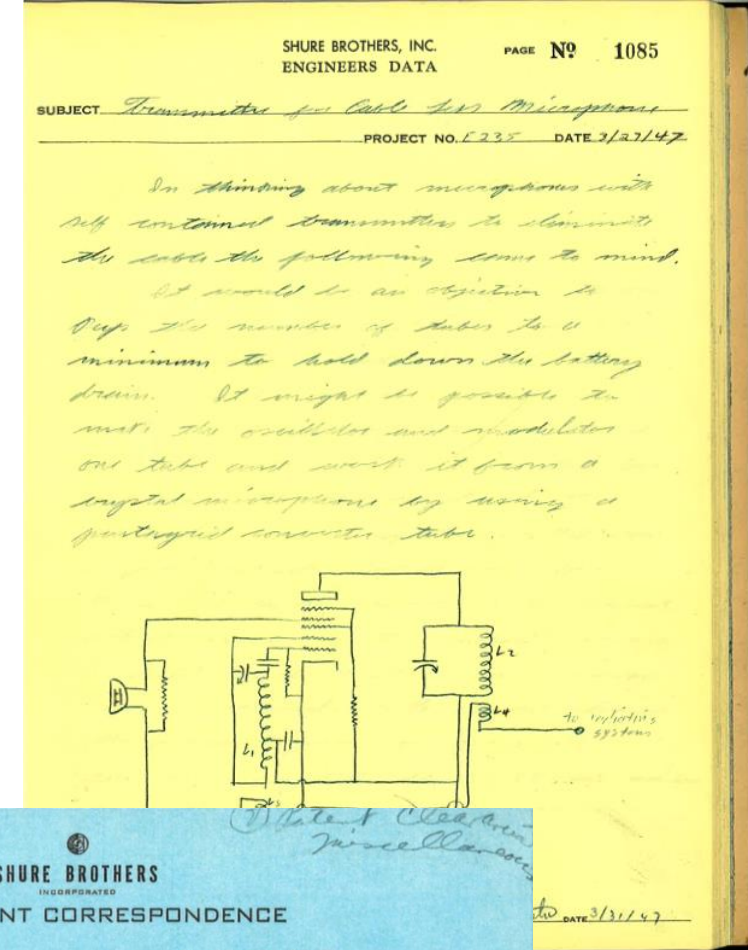 SHURE BROTHERS, INC.
ENGINEERS DATA
PAGE Nº 1085
SUBJECT Transmitter for Cable less Microphone
PROJECT NO. E235 DATE 3/27/47
In thinking about microphones with
self contained transmitters to eliminate
the cable the following came to mind.
It would be an objective to
keep the number of tubes to a
minimum to hold down the battery
drain. It might be possible to
make the oscillator and modulator
one tube and work it from a
crystal microphone by using a
pentagrid converter tube.
L2
L4
L1
to radiating
system
Patent Clearance
Miscellaneous
SHURE BROTHERS
INCORPORATED
NT CORRESPONDENCE
DATE 3/31/47